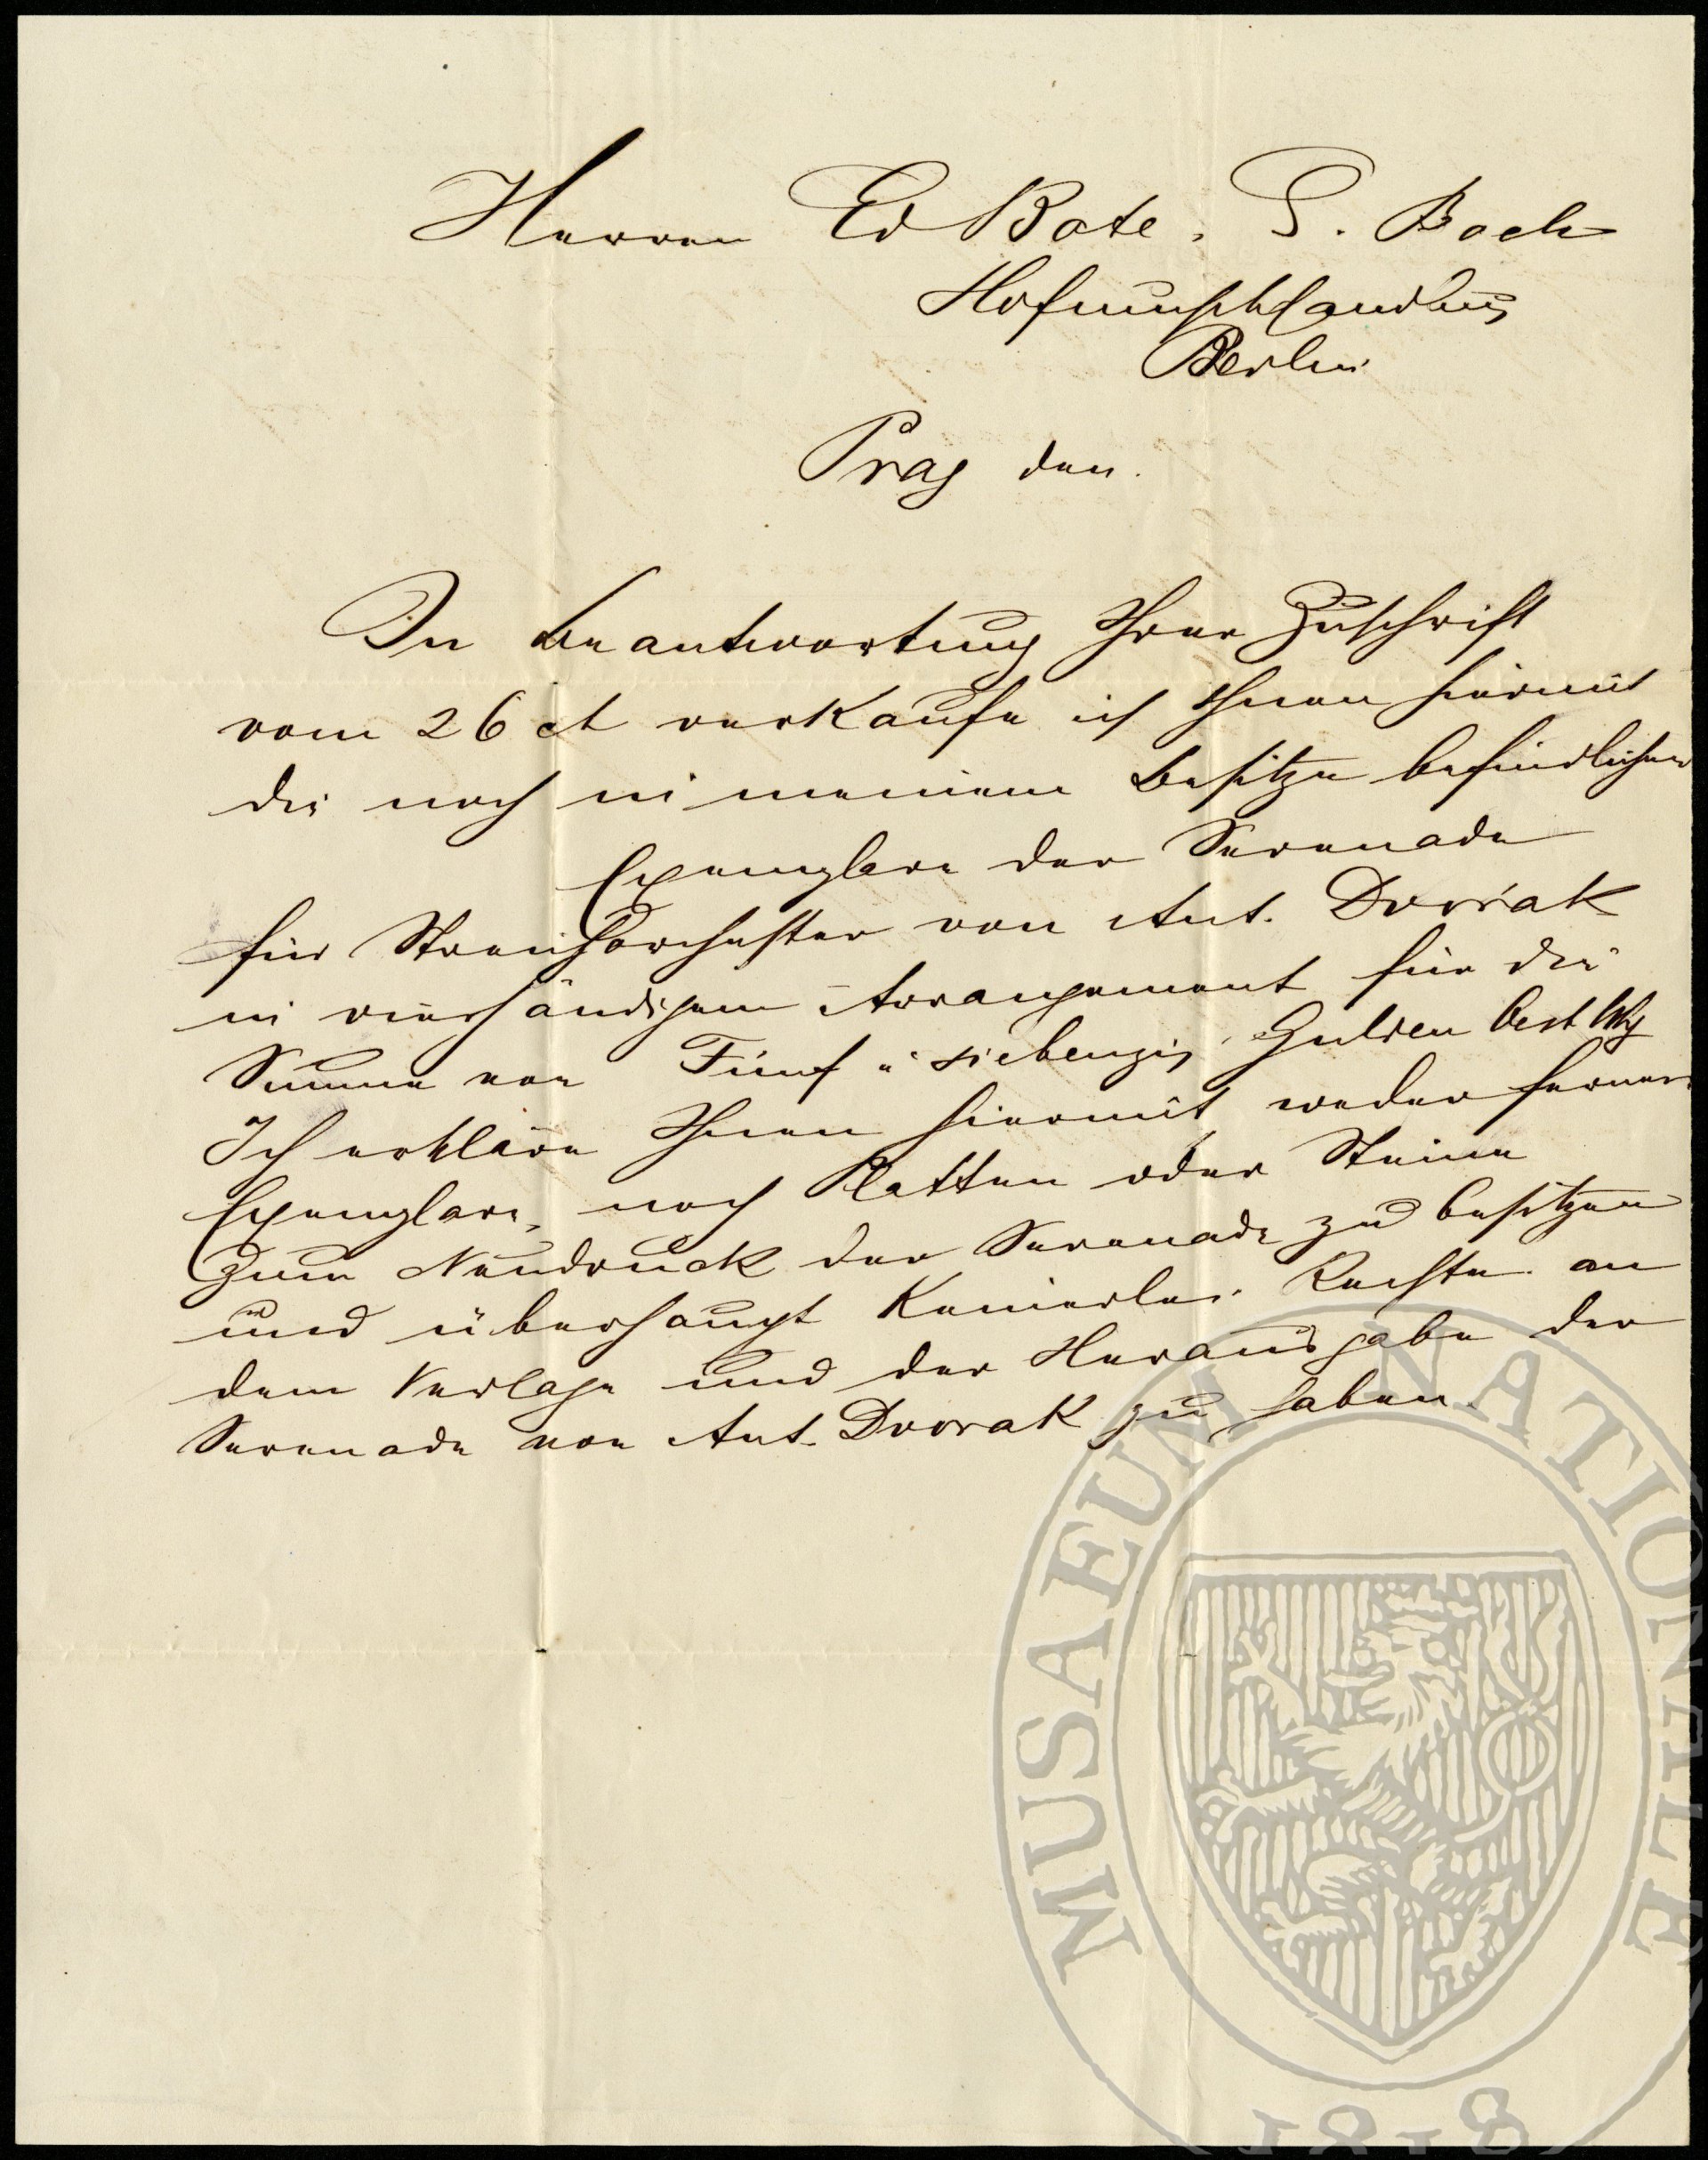 Herren Ed Bote, G. Bock
Hofmusikhandlung
Berlin
Prag den.
In Beantwortung Ihrer Zuschrift
vom 26 ct verkaufe ich Ihnen hiermit
die noch in meinem Besitze befindlichen
Exemplare der Serenade
für Streichorchester von Ant. Dvořak
in vierhändigem Arrangement für die
Summe von Fünf u siebenzig Gulden Oest Whg
Ich erkläre Ihnen hiermit weder ferner
Exemplare, noch Platten oder Steine
zum Neudruck der Serenade zu besitzen
und überhaupt keinerlei Rechte an
dem Verlage und der Herausgabe der
Serenade von Ant. Dvorak zu haben.
MUSAEUM NATIONALE
1818